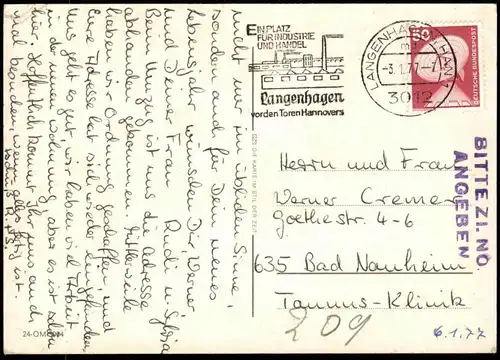 nicht nur im üblichen Sinne,
sondern auch für Dein neues
Lebensjahr wünschen Dir, Werner
und Deiner Frau Rudi u. Sylvia
Beim Umzug ist uns die Adresse
abhanden gekommen. Mittlerweile
haben wir Ordnung geschaffen und
Eure Adresse hat sich wieder eingefunden.
Uns geht es gut, wir haben viel Arbeit
in der aber es ist schön
hier. Hoffentlich kommt Ihr uns auch
mal besuchen, wenn alles gut
24-OM
EIN PLATZ
FÜR INDUSTRIE
UND HANDEL
Langenhagen
vor den Toren Hannovers
LANGENHAGEN, HAN
-3.1.77-
3012
50
DEUTSCHE BUNDESPOST
BITTE ZI. NO.
ANGEBEN
Herrn und Frau
Werner Cremer
Goethestr. 4-6
635 Bad Nauheim
Taunus-Klinik
209
6.1.77